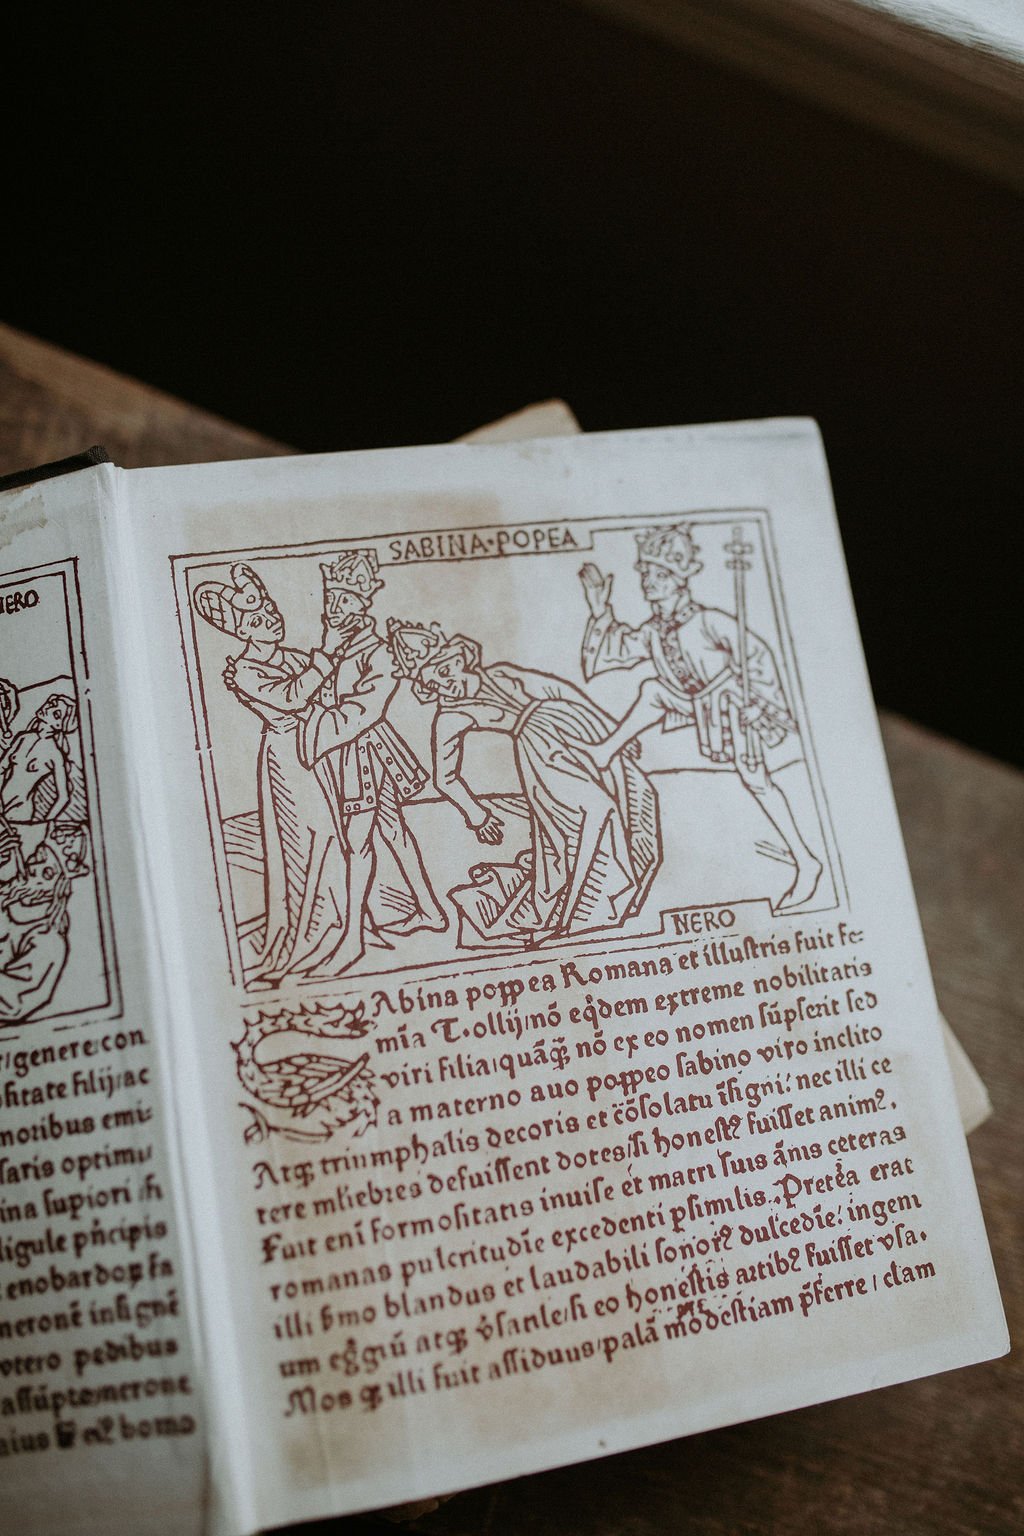 NERO
r/genere:con
sitate filij/ac
moribus emi-
saris optimu
ina supiori /h
ligule pñcipis
enobardoꝝ fa
neronē insignē
vtero pedibus
assūpto/nerone
bomo
SABINA·POPEA
NERO
SAbina poppea Romana et illustris fuit fe-
mīa T.ollij/nō eq̇dem extreme nobilitatis
viri filia/quāꝙ̄ nō ex eo nomen sūpserit sed
a materno auo poppeo sabino viro inclito
Atqꝫ triumphalis decoris et cōsolatu īsigni: nec illi ce
tere mliebres defuissent dotes/si honestꝰ fuisset animꝰ.
Fuit enī formositatis inuise et matri suis ānis ceteras
romanas pulcritudīe excedenti psimilis. Pretēa erat
illi ẜmo blandus et laudabili sonorꝰ dulcedīe: ingeni
um egͥgiū atqꝫ vsatile/si eo honestis artibꝰ fuisset vsa.
Mos qꝫ illi fuit assiduus/palā modestiam p̄ferre / clam